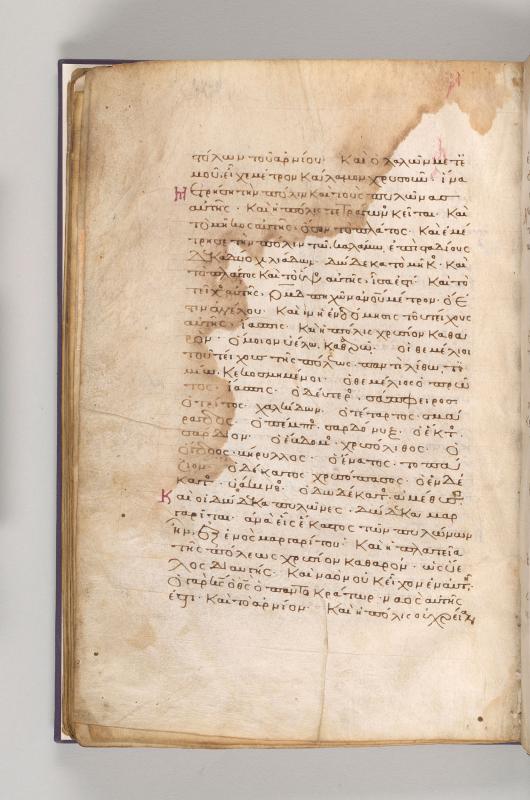 στόλων τοῦ ἀρνίου· Καὶ ὁ λαλῶν μετ ἐ
μοῦ, εἶχε μέτρον κάλαμον χρυσοῦν· ἵνα
μετρήσῃ τὴν πόλιν καὶ τοὺς πυλῶνας
αὐτῆς· καὶ ἡ πόλις τετράγωνος κεῖται· καὶ
τὸ μῆκος αὐτῆς· ὅσον τὸ πλάτος· Καὶ ἐμέ
τρησε τὴν πόλιν τῷ καλάμῳ, ἐπὶ σταδίους
δώδεκα χιλιάδων· δώδεκα τὸ μῆκος· καὶ
τὸ πλάτος καὶ τὸ ὕψος αὐτῆς, ἴσα ἐστί· Καὶ τὸ
τεῖχος αὐτῆς, ρμδ πηχῶν ἀνοῦ μέτρον· ὅ ἐ
στιν ἀγγέλου· Καὶ ἦν ἡ ἐνδόμησις τοῦ τείχους
αὐτῆς ἴασπις· Καὶ ἡ πόλις χρυσίον καθα
ρὸν· ὅμοιον ὑέλῳ καθαρῷ· οἱ θεμέλιοι
τοῦ τείχους τῆς πόλεως παντὶ λίθῳ τι
μίῳ κεκοσμημένοι· ὁ θεμέλιος ὁ πρῶ
τος· ἴασπις· ὁ δεύτερος, σάπφειρος
ὁ τρίτος χαλκηδών· ὁ τέταρτος· σμά
ραγδος· ὁ πέμπτος, σαρδόνυξ· ὁ ἕκτος·
σάρδιον· ὁ ἕβδομος· χρυσόλιθος· ὁ
ὄγδοος, βήρυλλος· ὁ ἔνατος· τοπά
ζιον· ὁ δέκατος χρυσόπασος· ὁ ἑνδέ
κατος· ὑάκινθος· ὁ δωδέκατος, ἀμέθυστος
Καὶ οἱ δώδεκα πυλῶνες, δώδεκα μαρ
γαρῖται· ἀνὰ εἷς ἕκαστος τῶν πυλώνων
ἦν, ἐξ ἑνὸς μαργαρίτου· Καὶ ἡ πλατεῖα
τῆς πόλεως χρυσίον καθαρὸν· ὡς ὕε
λος διαυγής· Καὶ ναὸν οὐκ εἶδον ἐν αὐτῇ·
ὁ γὰρ κς ὁ θς ὁ παντοκράτωρ· ναὸς αὐτῆς
ἐστί· καὶ τὸ ἀρνίον· Καὶ ἡ πόλις οὐ χρείαν